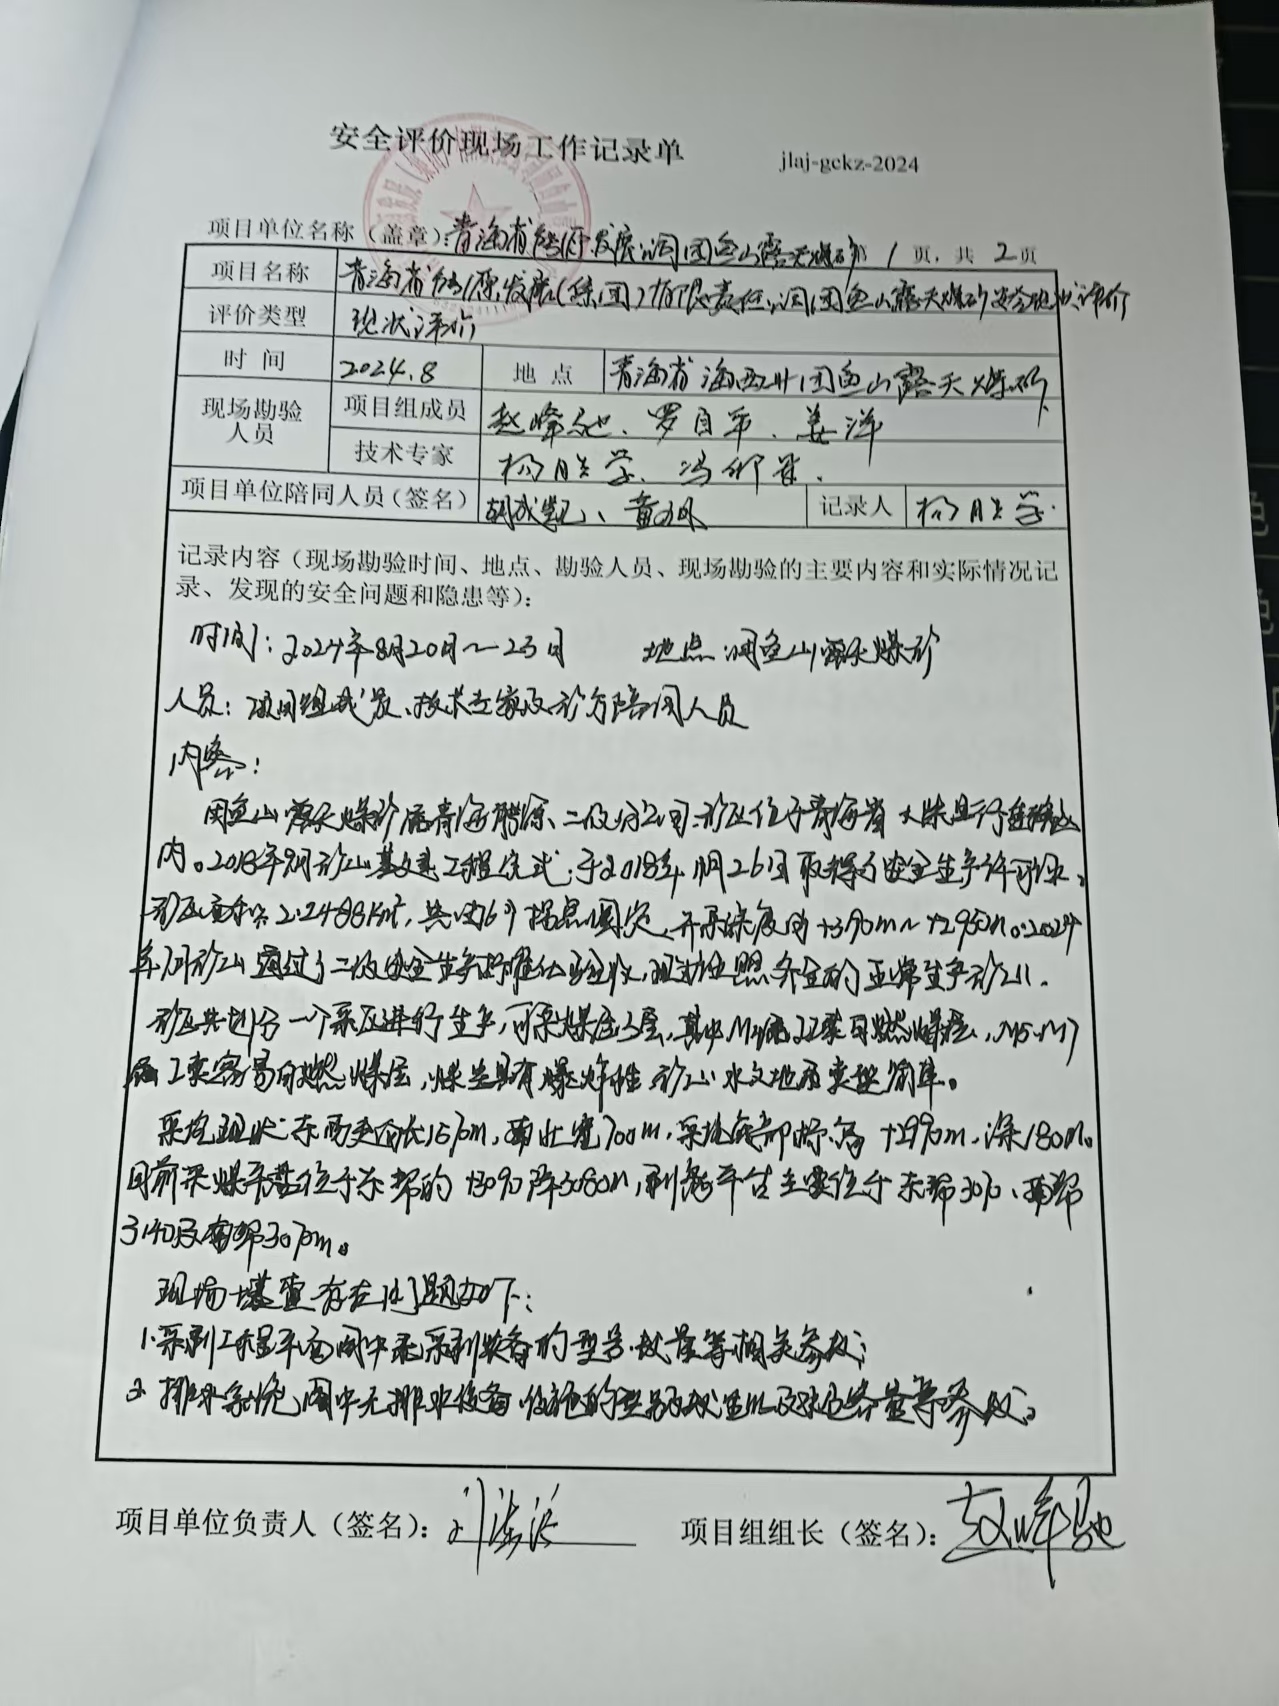 安全评价现场工作记录单 jlaj-gckz-2024
项目单位名称（盖章）：青海省能源发展 团鱼山露天煤矿 第 1 页，共 2 页
项目名称 青海省能源发展(集团)有限责任 团鱼山露天煤矿安全现状评价
评价类型 现状评价
时 间 2024.8 地 点 青海省海西州团鱼山露天煤矿
现场勘验人员 项目组成员 赵峰驰、罗自平、姜洋
技术专家 杨胜学、冯
项目单位陪同人员（签名） 记录人 杨胜学
记录内容（现场勘验时间、地点、勘验人员、现场勘验的主要内容和实际情况记
录、发现的安全问题和隐患等）：
时间：2024年8月20日～23日 地点：团鱼山露天煤矿
人员：项目组成员、技术专家及矿方陪同人员
内容：
团鱼山露天煤矿属青海 二级分公司，矿区位于青海省大柴旦行 区
内。2018年 月矿山基建工程完成，于2018年 月26日取得了安全生产许可证。
矿区面积 2.2488km²，共由6个拐点圈定，开采深度由 +3 m～+2950m。2024
年 月矿山通过了二级安全生产标准化验收，现为证照齐全的正常生产矿山。
矿区共划分一个采区进行生产，可采煤层3层，其中 类自燃煤层，M5、M7
属I类容易自燃煤层，煤尘具有爆炸性，矿山水文地质类型简单。
采坑现状：东西走向长1570m，南北宽700m，采坑底部标高+2990m，深180m。
目前采煤平盘位于东帮的+3090 3080m，剥离平台主要位于东帮 、南帮
3140及 帮3070m。
现场勘查存在问题如下：
1.采剥工程平面图中无采剥装备的型号、数量等相关参数；
2.排水系统图中无排水设备、设施的型号及数量以及 容量等参数。
项目单位负责人（签名）： 项目组组长（签名）：赵峰驰